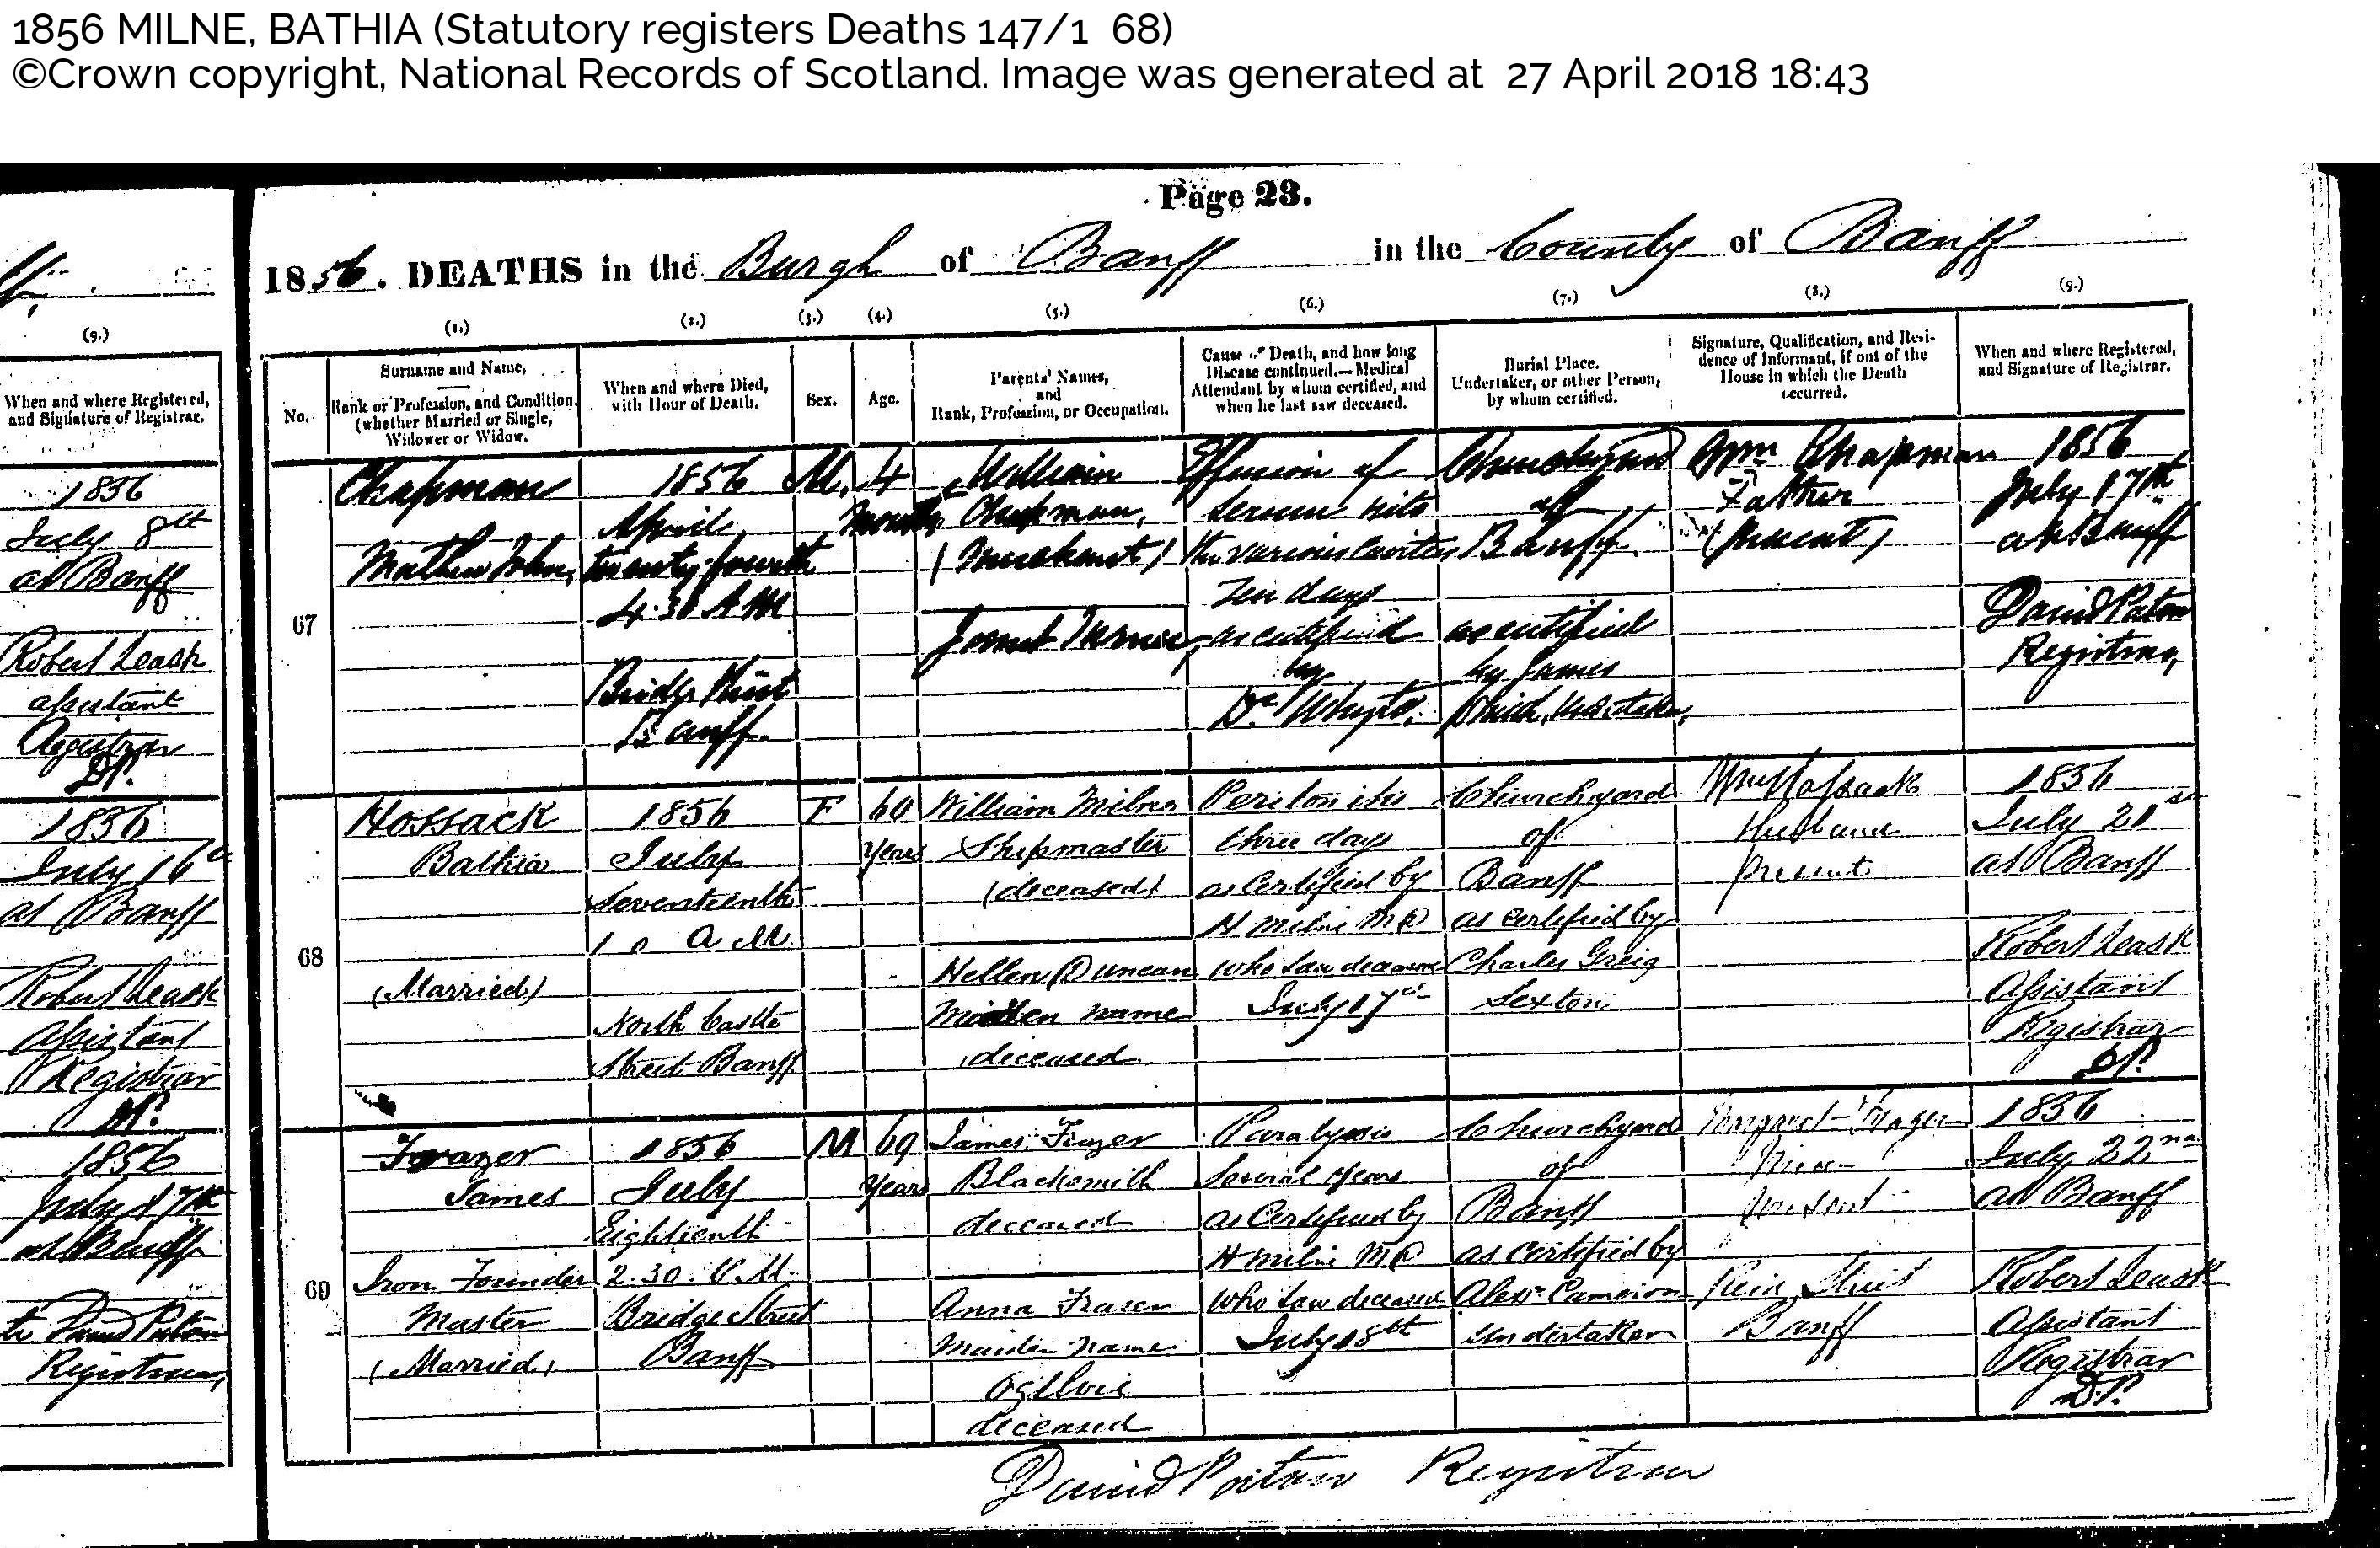 1856 MILNE, BATHIA (Statutory registers Deaths 147/1 68)
©Crown copyright, National Records of Scotland. Image was generated at 27 April 2018 18:43
(9.)
When and where Registered,
and Signature of Registrar.
1856
July 8th
at Banff
Robert Leask
assistant
Registrar
D.P.
1856
July 16th
at Banff
Robert Leask
Assistant
Registrar
D.P.
1856
July 17th
at Banff
David Paton
Registrar,
Page 23.
1856. DEATHS in the Burgh of Banff in the County of Banff
(1.) (2.) (3.) (4.) (5.) (6.) (7.) (8.) (9.)
No.
Surname and Name,
Rank or Profession, and Condition
(whether Married or Single,
Widower or Widow.
When and where Died,
with Hour of Death.
Sex.
Age.
Parents' Names,
and
Rank, Profession, or Occupation.
Cause of Death, and how long
Disease continued.—Medical
Attendant by whom certified, and
when he last saw deceased.
Burial Place.
Undertaker, or other Person,
by whom certified.
Signature, Qualification, and Resi-
dence of Informant, if out of the
House in which the Death
occurred.
When and where Registered,
and Signature of Registrar.
67
Chapman
Mathew John,
1856
April
twenty-fourth
4.30 A M
Bridge Street
Banff.
M.
4
Months
William
Chapman,
(Merchant)
Janet Turner,
Effusion of
serum into
the various cavities
Ten days
as certified
by
Dr Whyte.
Churchyard
of
Banff.
as certified
by James
Wm Chapman
Father
(present)
1856
July 17th
at Banff
David Paton
Registrar,
68
Hossack
Bathia
(Married)
1856
July
Seventeenth
A M
North Castle
Street Banff
F
60
years
William Milne
Shipmaster
(deceased)
Hellen Duncan
Maiden name
deceased
Peritonitis
three days
as Certified by
H Milne MD
who saw deceased
July 17th
Churchyard
of
Banff
as certified by
Charles Greig
Sexton
Wm Hossack
Husband
present
1856
July 21st
at Banff
Robert Leask
Assistant
Registrar
D.P.
69
Frazer
James
Iron Founder
Master
(Married)
1856
July
Eighteenth
2.30. P.M.
Bridge Street
Banff
M
69
years
James Frazer
Blacksmith
deceased
Anna Fraser
Maiden name
Ogilvie
deceased
Paralysis
Several years
as Certified by
H Milne MD
who saw deceased
July 18th
Churchyard
of
Banff
as certified by
Alexr Cameron
Undertaker
Margaret Frazer
Niece
present
Street
Banff
1856
July 22nd
at Banff
Robert Leask
Assistant
Registrar
D.P.
David Paton Registrar